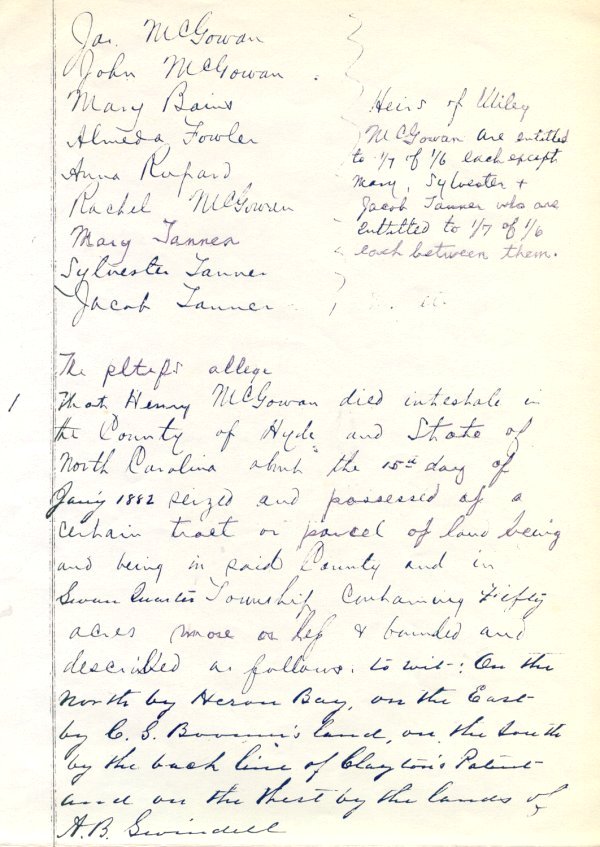 Jas. McGowan
John McGowan
Mary Bains
Almeda Fowler
Anna Rupard
Rachel McGowen
Mary Tanner
Sylvester Tanner
Jacob Tanner
Heirs of Wiley
McGowan are entitled
to 1/7 of 1/6 each except
Mary, Sylvester +
Jacob Tanner who are
entitled to 1/7 of 1/6
each between them.
The pltffs allege
1 That Henry McGowan died intestate in
the County of Hyde and State of
North Carolina about the 15th day of
Jan'y 1882 seized and possessed of a
certain tract or parcel of land being
and being in said County and in
Swan Quarter Township, containing Fifty
acres more or less & bounded and
described as follows: to wit: On the
North by Heron Bay, on the East
by C. S. land, on the South
by the back line of Clayton's Patent
and on the West by the lands of
A.B. Swindell